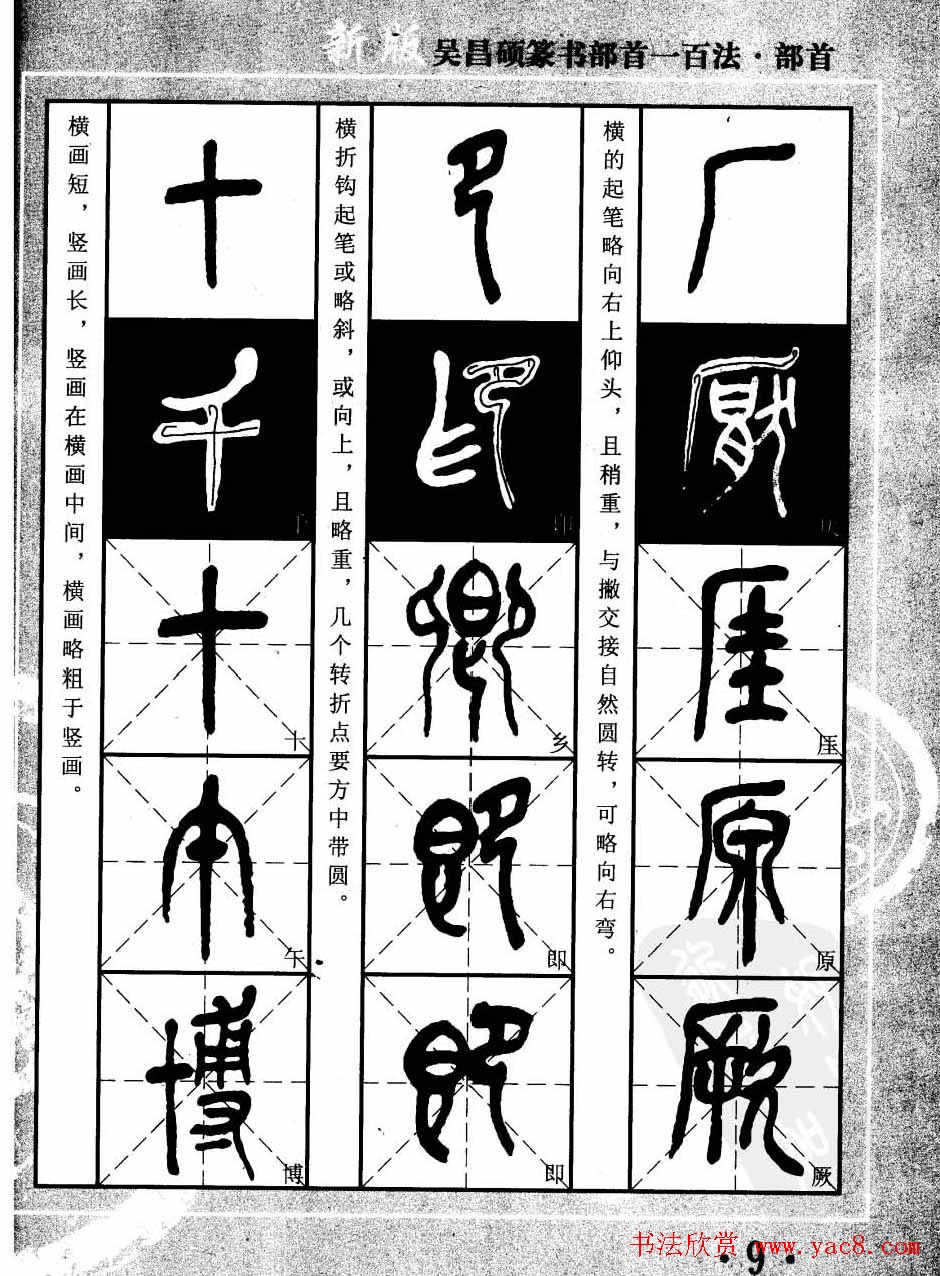 新版 吴昌硕篆书部首一百法·部首
横的起笔略向右上仰头，且稍重，与撇交接自然圆转，可略向右弯。
厂
厓
原
厥
横折钩起笔或略斜，或向上，且略重，几个转折点要方中带圆。
卩
印
乡
即
即
横画短，竖画长，竖画在横画中间，横画略粗于竖画。
十
千
十
午
博
书法欣赏 www.yac8.com
·9·